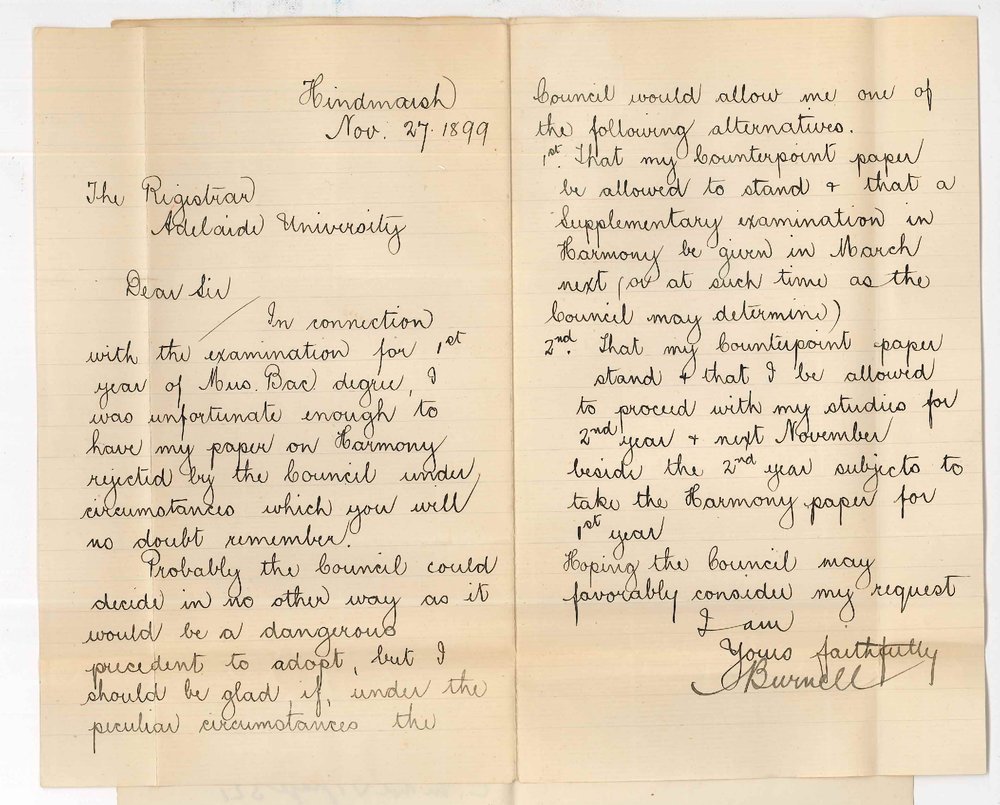 Hindmarsh
Nov. 27. 1899.
The Registrar
Adelaide University
Dear Sir
In connection
with the examination for 1st
year of Mus. Bac degree, I
was unfortunate enough to
have my paper on Harmony
rejected by the Council under
circumstances which you will
no doubt remember.
Probably the Council could
decide in no other way as it
would be a dangerous
precedent to adopt, but I
should be glad, if, under the
peculiar circumstances the
Council would allow me one of
the following alternatives.
1st. That my Counterpoint paper
be allowed to stand + that a
Supplementary examination in
Harmony be given in March
next (or at such time as the
Council may determine)
2nd. That my Counterpoint paper
stand + that I be allowed
to proceed with my studies for
2nd year + next November
beside the 2nd year subjects to
take the Harmony paper for
1st year
Hoping the Council may
favorably consider my request
I am
Yours faithfully
J Burnell